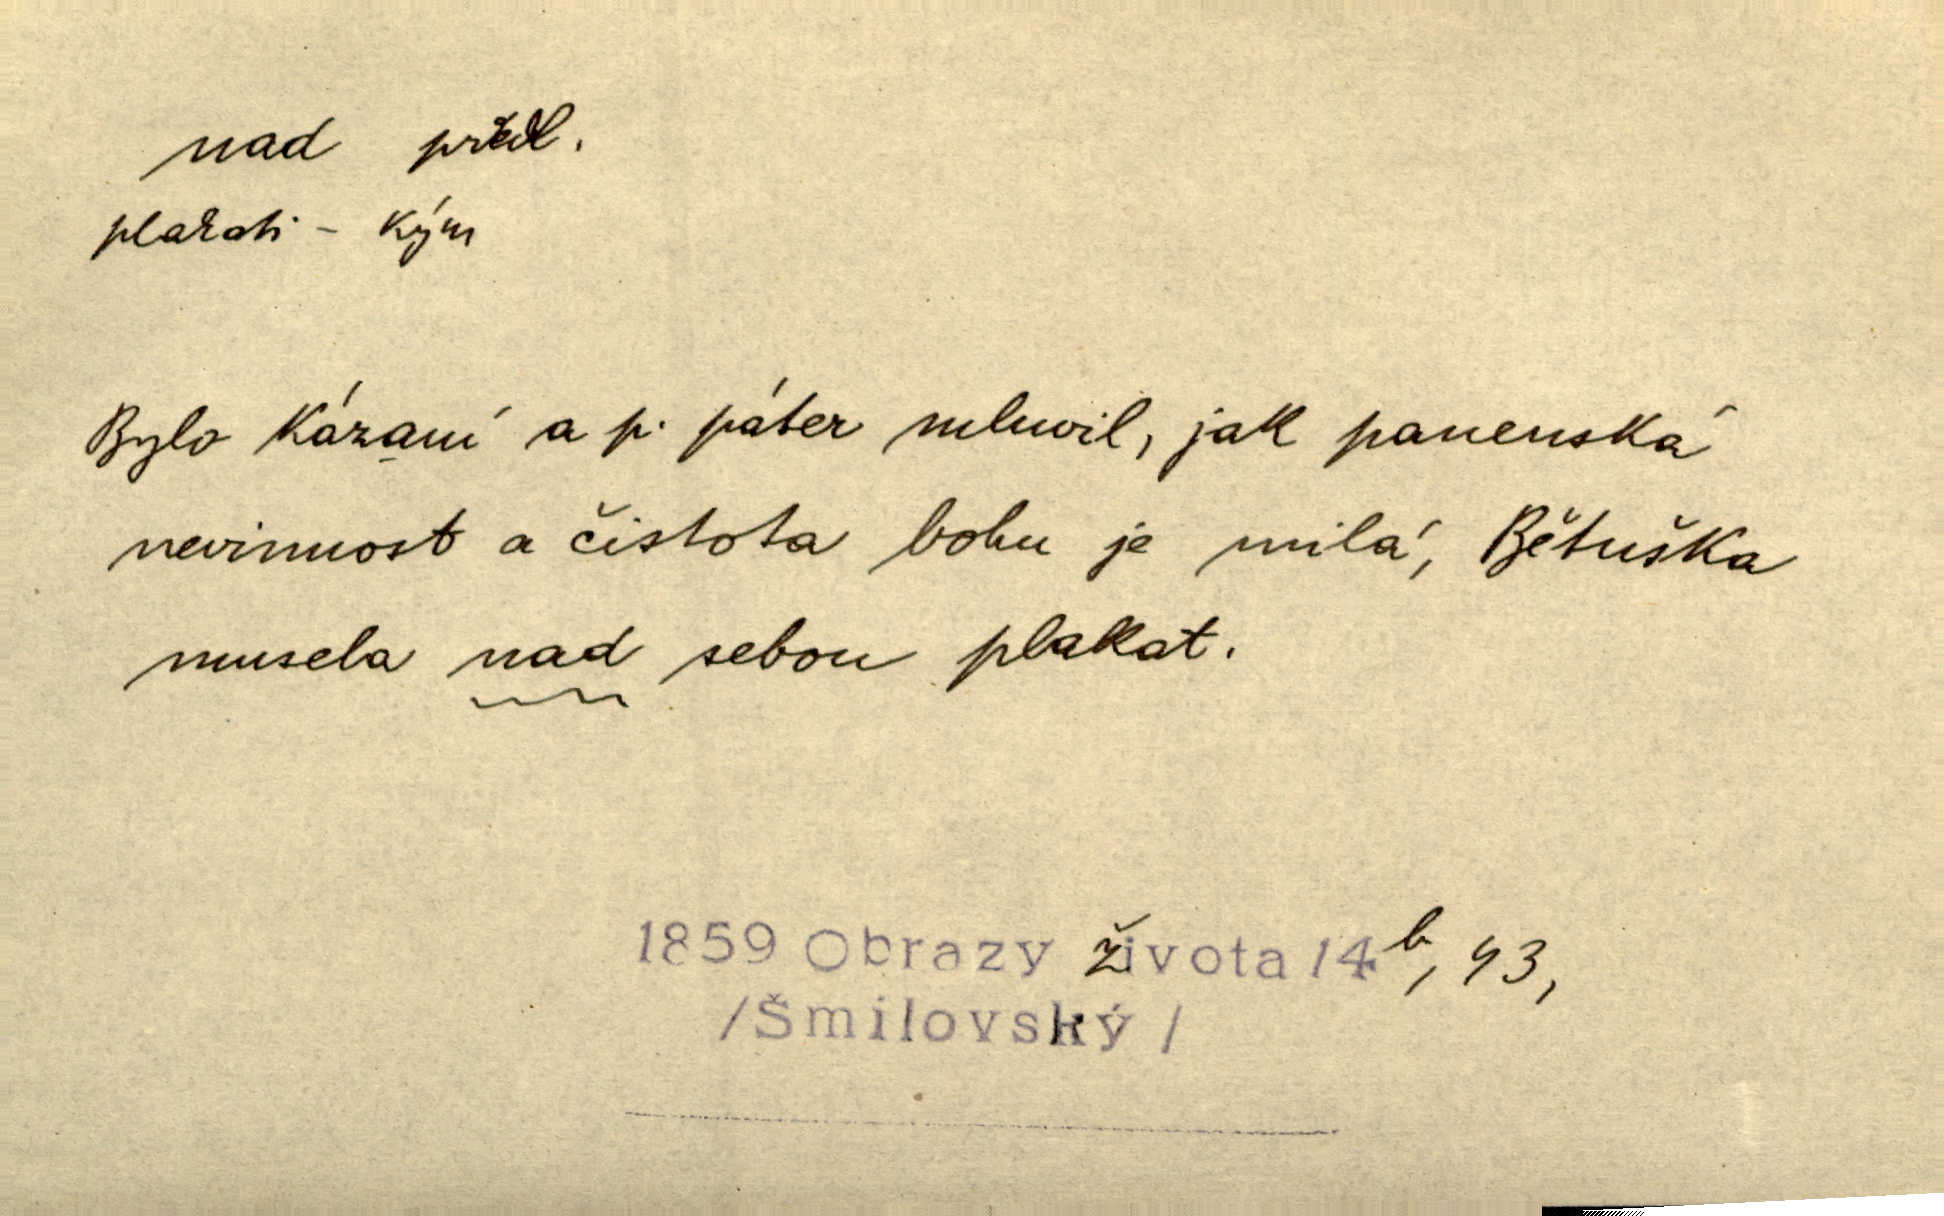 nad před.
plakati - kým
Bylo kázaní a p. páter mluvil, jak panenská
nevinnost a čistota bohu je milá, Bětuška
musela nad sebou plakat.
1859 Obrazy života 14b, 43,
/Šmilovský/